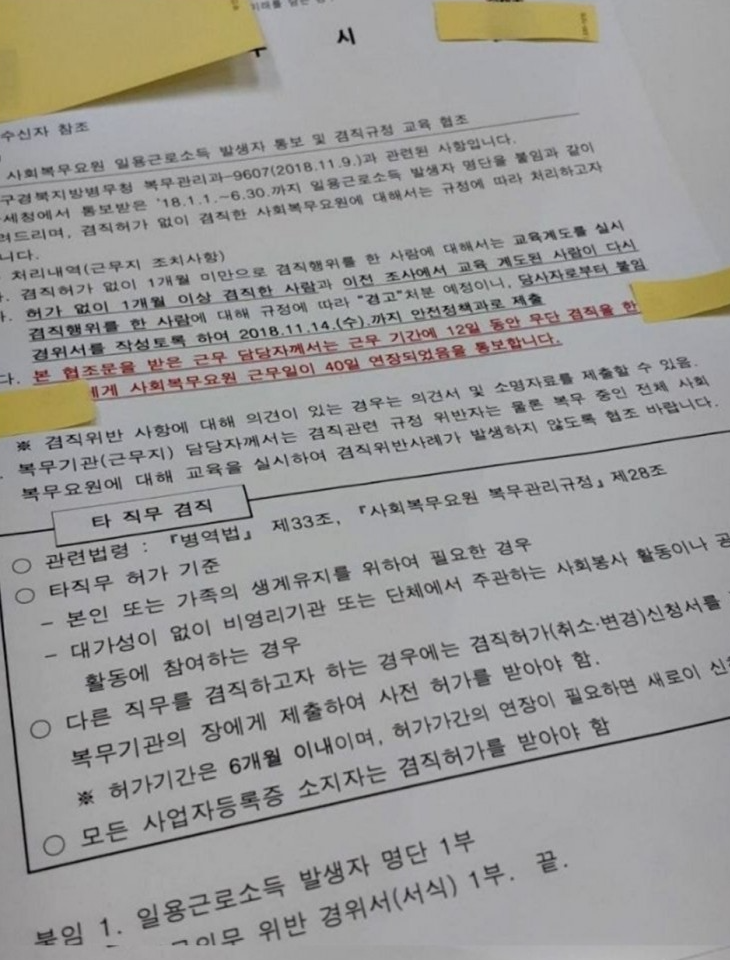 시
수신자 참조
사회복무요원 일용근로소득 발생자 통보 및 겸직규정 교육 협조
구경북지방병무청 복무관리과-9607(2018.11.9.)과 관련된 사항입니다.
세청에서 통보받은 '18.1.1.~6.30.까지 일용근로소득 발생자 명단을 붙임과 같이
려드리며, 겸직허가 없이 겸직한 사회복무요원에 대해서는 규정에 따라 처리하고자
니다.
처리내역(근무지 조치사항)
. 겸직허가 없이 1개월 미만으로 겸직행위를 한 사람에 대해서는 교육계도를 실시
. 허가 없이 1개월 이상 겸직한 사람과 이전 조사에서 교육 계도된 사람이 다시
겸직행위를 한 사람에 대해 규정에 따라 "경고"처분 예정이니, 당사자로부터 붙임
경위서를 작성토록 하여 2018.11.14.(수).까지 안전정책과로 제출
다. 본 협조문을 받은 근무 담당자께서는 근무 기간에 12일 동안 무단 겸직을 한
에게 사회복무요원 근무일이 40일 연장되었음을 통보합니다.
※ 겸직위반 사항에 대해 의견이 있는 경우는 의견서 및 소명자료를 제출할 수 있음.
. 복무기관(근무지) 담당자께서는 겸직관련 규정 위반자는 물론 복무 중인 전체 사회
복무요원에 대해 교육을 실시하여 겸직위반사례가 발생하지 않도록 협조 바랍니다.
타 직무 겸직
○ 관련법령 : 『병역법』 제33조, 『사회복무요원 복무관리규정』 제28조
○ 타직무 허가 기준
- 본인 또는 가족의 생계유지를 위하여 필요한 경우
- 대가성이 없이 비영리기관 또는 단체에서 주관하는 사회봉사 활동이나 공
활동에 참여하는 경우
○ 다른 직무를 겸직하고자 하는 경우에는 겸직허가(취소·변경)신청서를
복무기관의 장에게 제출하여 사전 허가를 받아야 함.
※ 허가기간은 6개월 이내이며, 허가기간의 연장이 필요하면 새로이 신
○ 모든 사업자등록증 소지자는 겸직허가를 받아야 함
붙임 1. 일용근로소득 발생자 명단 1부
위반 경위서(서식) 1부. 끝.